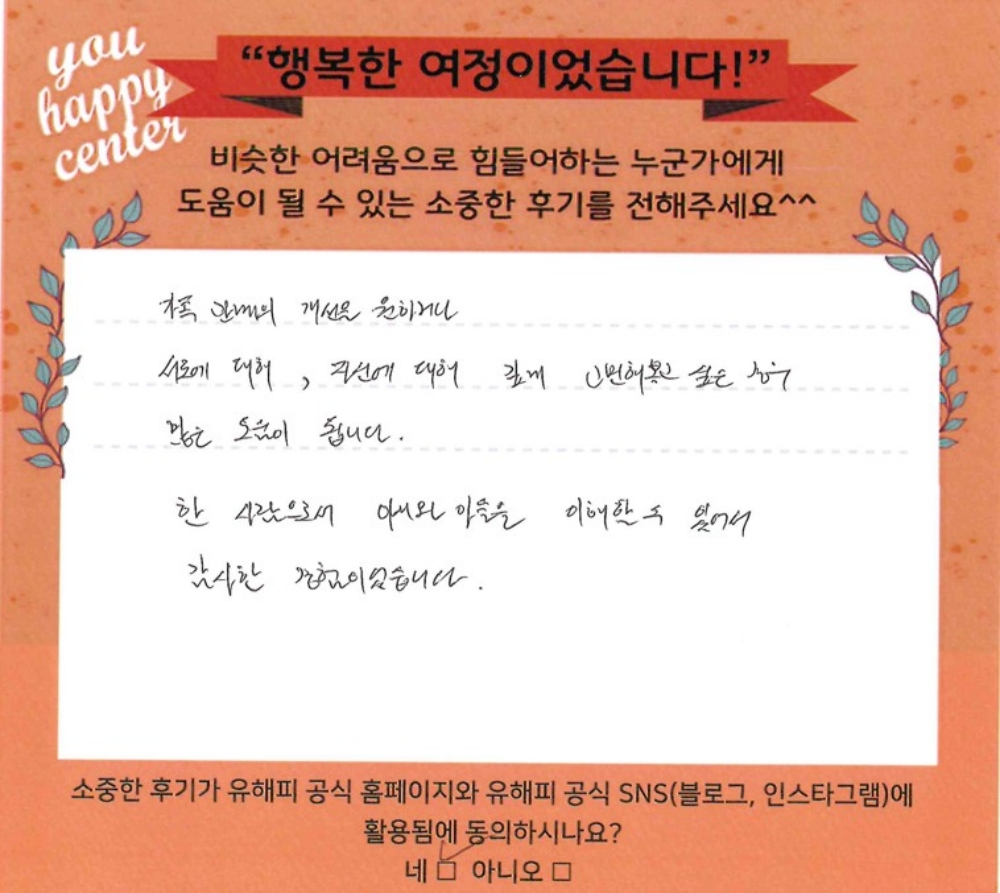 you
happy
center
“행복한 여정이었습니다!”
비슷한 어려움으로 힘들어하는 누군가에게
도움이 될 수 있는 소중한 후기를 전해주세요^^
가족 관계의 개선을 원하거나
서로에 대해, 자신에 대해 깊게 고민해보고 싶은 경우
많은 도움이 됩니다.
한 사람으로서 아내와 아들을 이해할 수 있어서
감사한 경험이었습니다.
소중한 후기가 유해피 공식 홈페이지와 유해피 공식 SNS(블로그, 인스타그램)에
활용됨에 동의하시나요?
네 □ 아니오 □